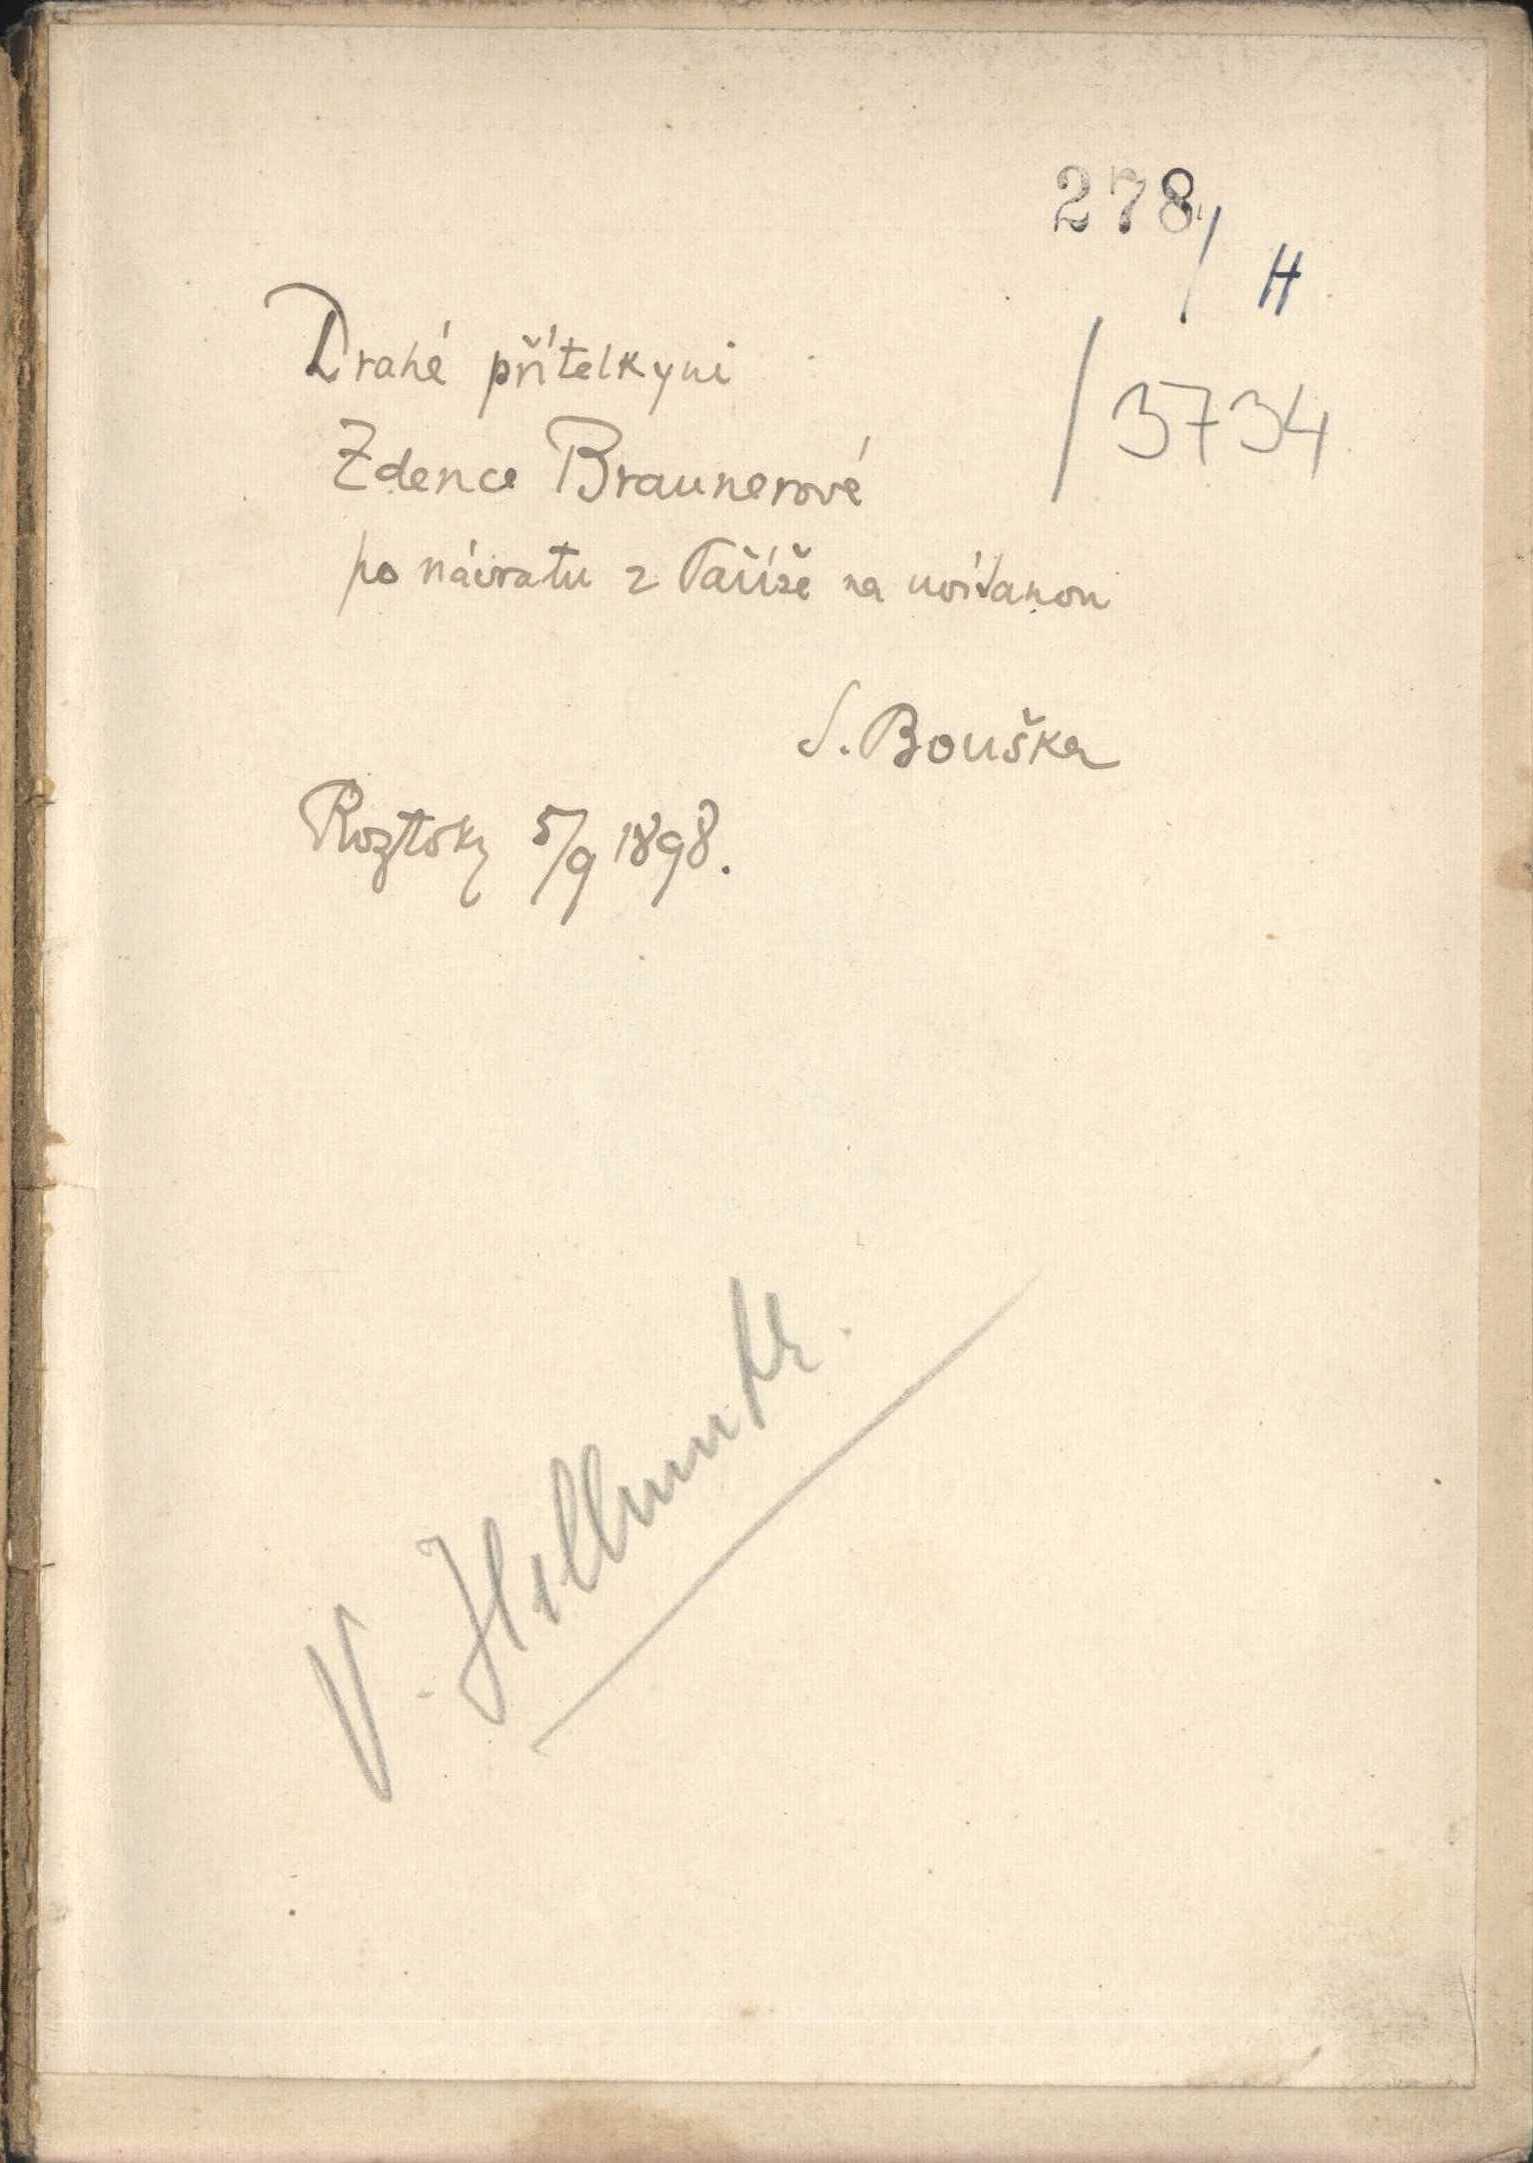 278/
H
/3734
Drahé přítelkyni
Zdence Braunerové
po návratu z Paříže na uvítanou
S. Bouška
Roztoky 5/9 1898.
V.